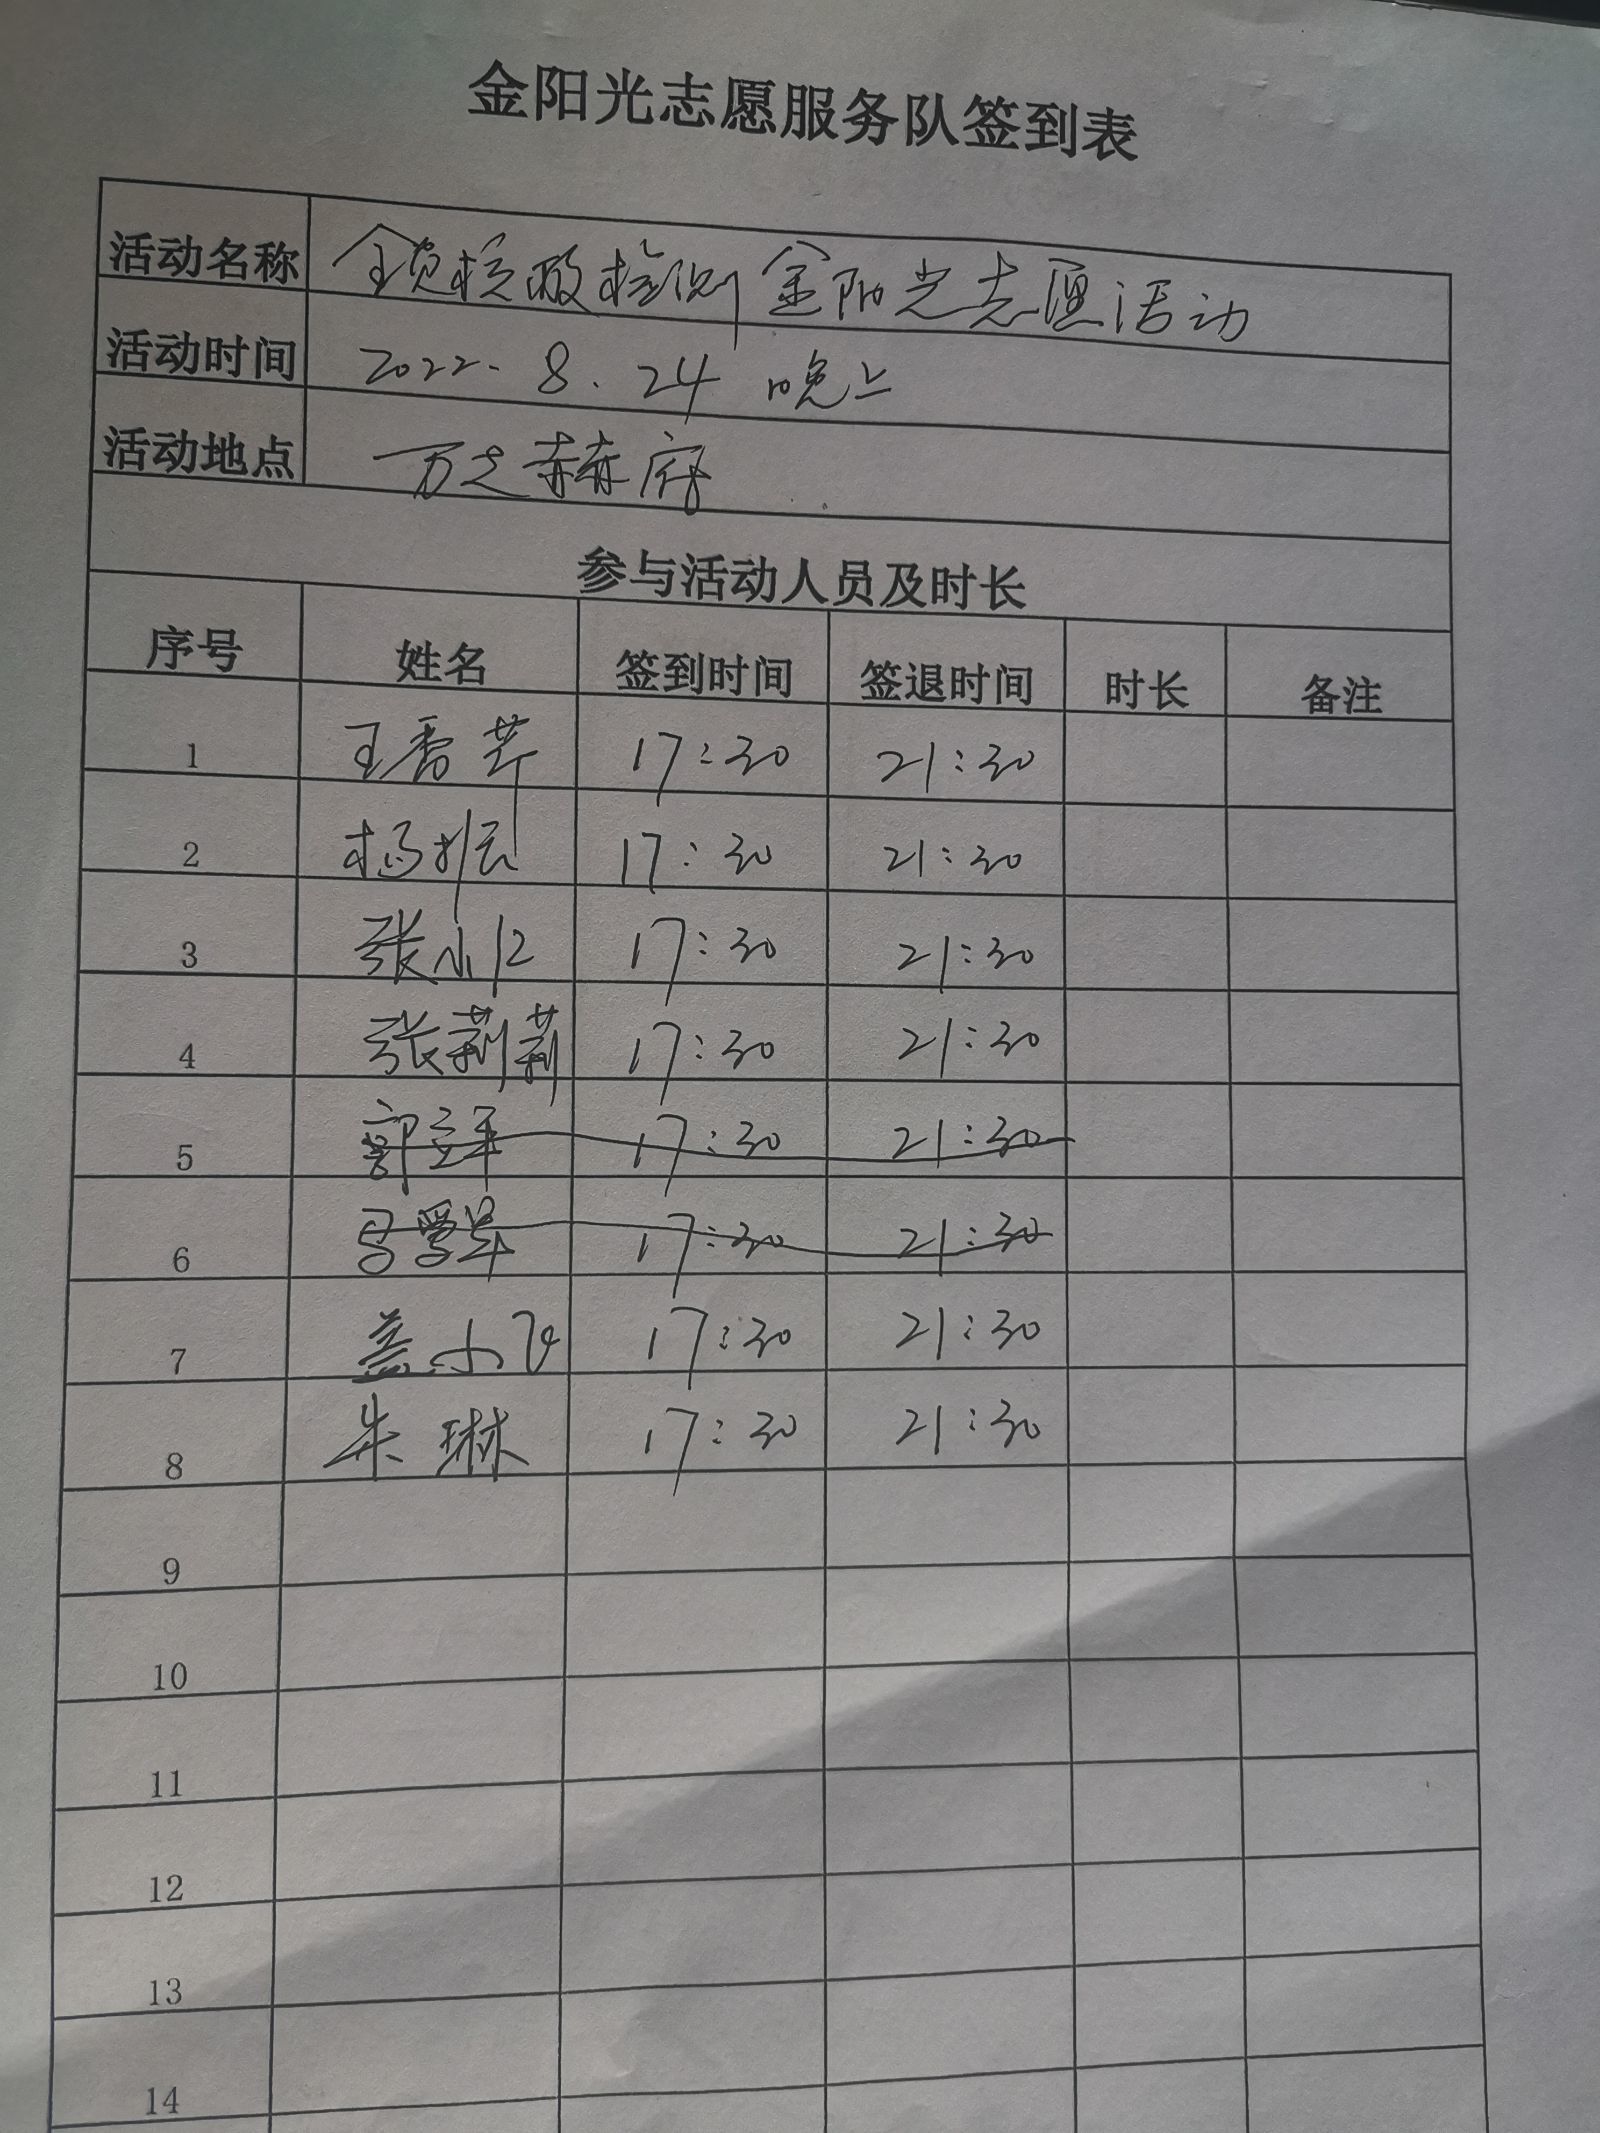 金阳光志愿服务队签到表
活动名称 全员核酸检测金阳光志愿活动
活动时间 2022.8.24 晚上
活动地点 万达赫府
参与活动人员及时长
序号 姓名 签到时间 签退时间 时长 备注
1 王香芹 17:30 21:30
2 杨振 17:30 21:30
3 张小仁 17:30 21:30
4 张莉莉 17:30 21:30
5 郭立军 17:30 21:30
6 17:30 21:30
7 盖小飞 17:30 21:30
8 朱琳 17:30 21:30
9
10
11
12
13
14